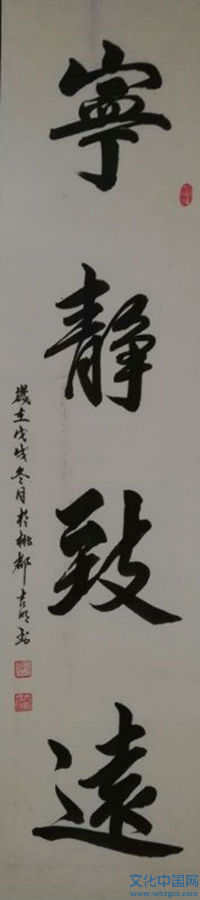 寧靜致遠
歲在戊戌冬月於桃都吉明书
文化中国网
www.whzgzx.com